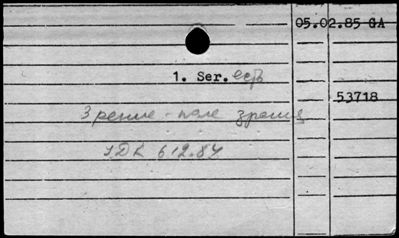 05.02.85 GA
1. Ser. есть
53718
Зрение - поле зрения
УДК 612.84